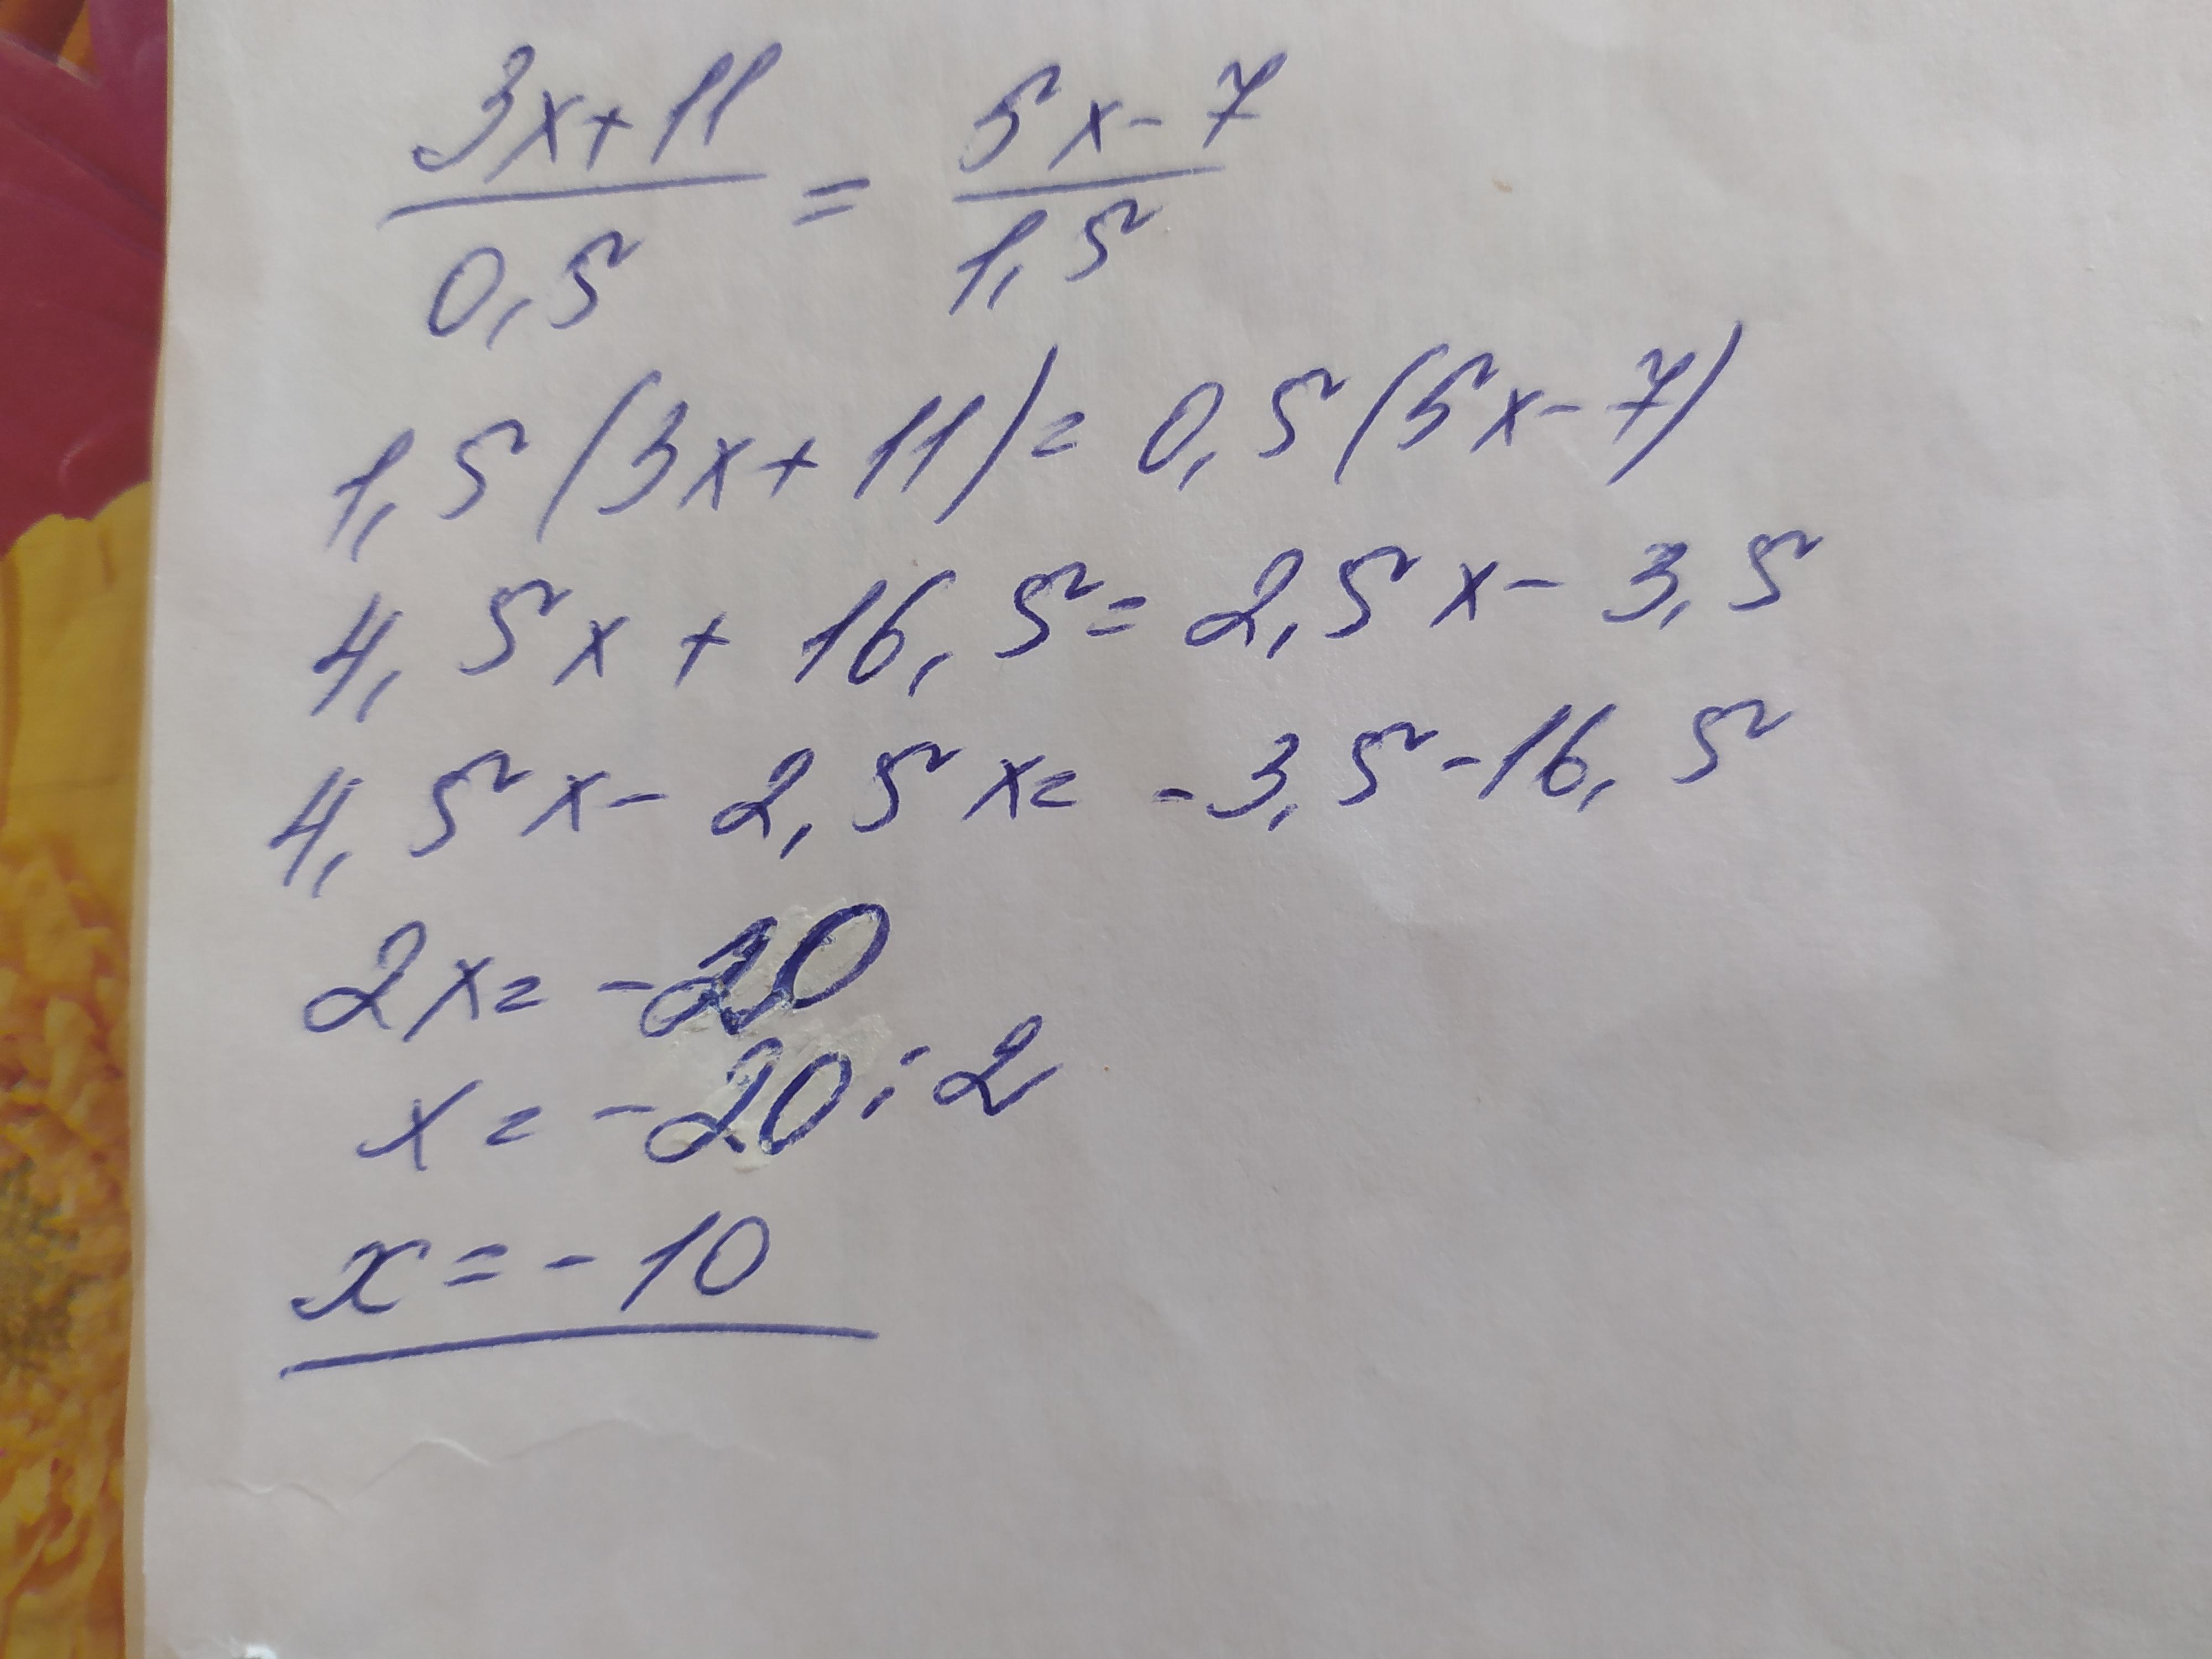 3x+11 / 0,5 = 5x-7 / 1,5
1,5(3x+11)=0,5(5x-7)
4,5x+16,5=2,5x-3,5
4,5x-2,5x=-3,5-16,5
2x=-20
x=-20:2
x=-10